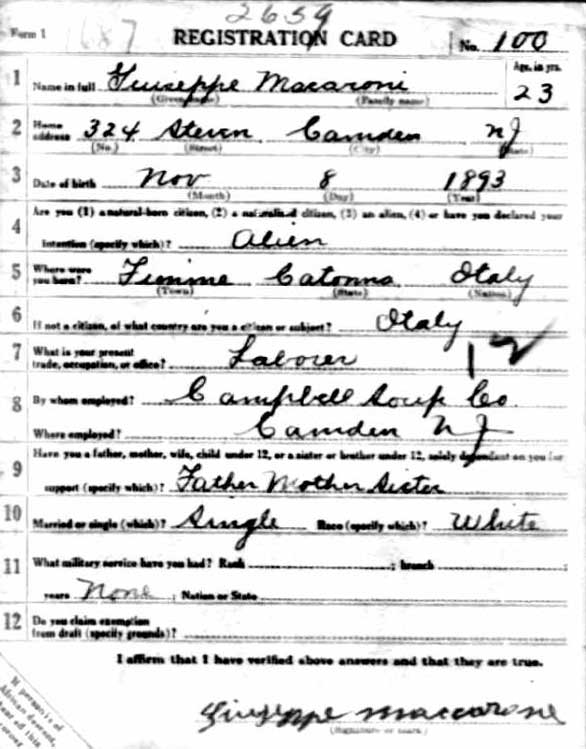 2659
Form 1 1687 REGISTRATION CARD No. 100
1 Name in full Giuseppe Macaroni Age, in yrs. 23
(Given name) (Family name)
2 Home address 324 Steven Camden NJ
(No.) (Street) (City) (State)
3 Date of birth Nov 8 1893
(Month) (Day) (Year)
4 Are you (1) a natural-born citizen, (2) a naturalized citizen, (3) an alien, (4) or have you declared your
intention (specify which)? Alien
5 Where were you born? Fiume Catonna Italy
(Town) (State) (Nation)
6 If not a citizen, of what country are you a citizen or subject? Italy
7 What is your present trade, occupation, or office? Laborer 12
8 By whom employed? Campbell Soup Co.
Where employed? Camden NJ
9 Have you a father, mother, wife, child under 12, or a sister or brother under 12, solely dependent on you for
support (specify which)? Father Mother Sister
10 Married or single (which)? Single Race (specify which)? White
11 What military service have you had? Rank ; branch ;
years None ; Nation or State
12 Do you claim exemption from draft (specify grounds)?
I affirm that I have verified above answers and that they are true.
Giuseppe Maccarone
(Signature or mark)
If person is of
African descent,
off this
corner